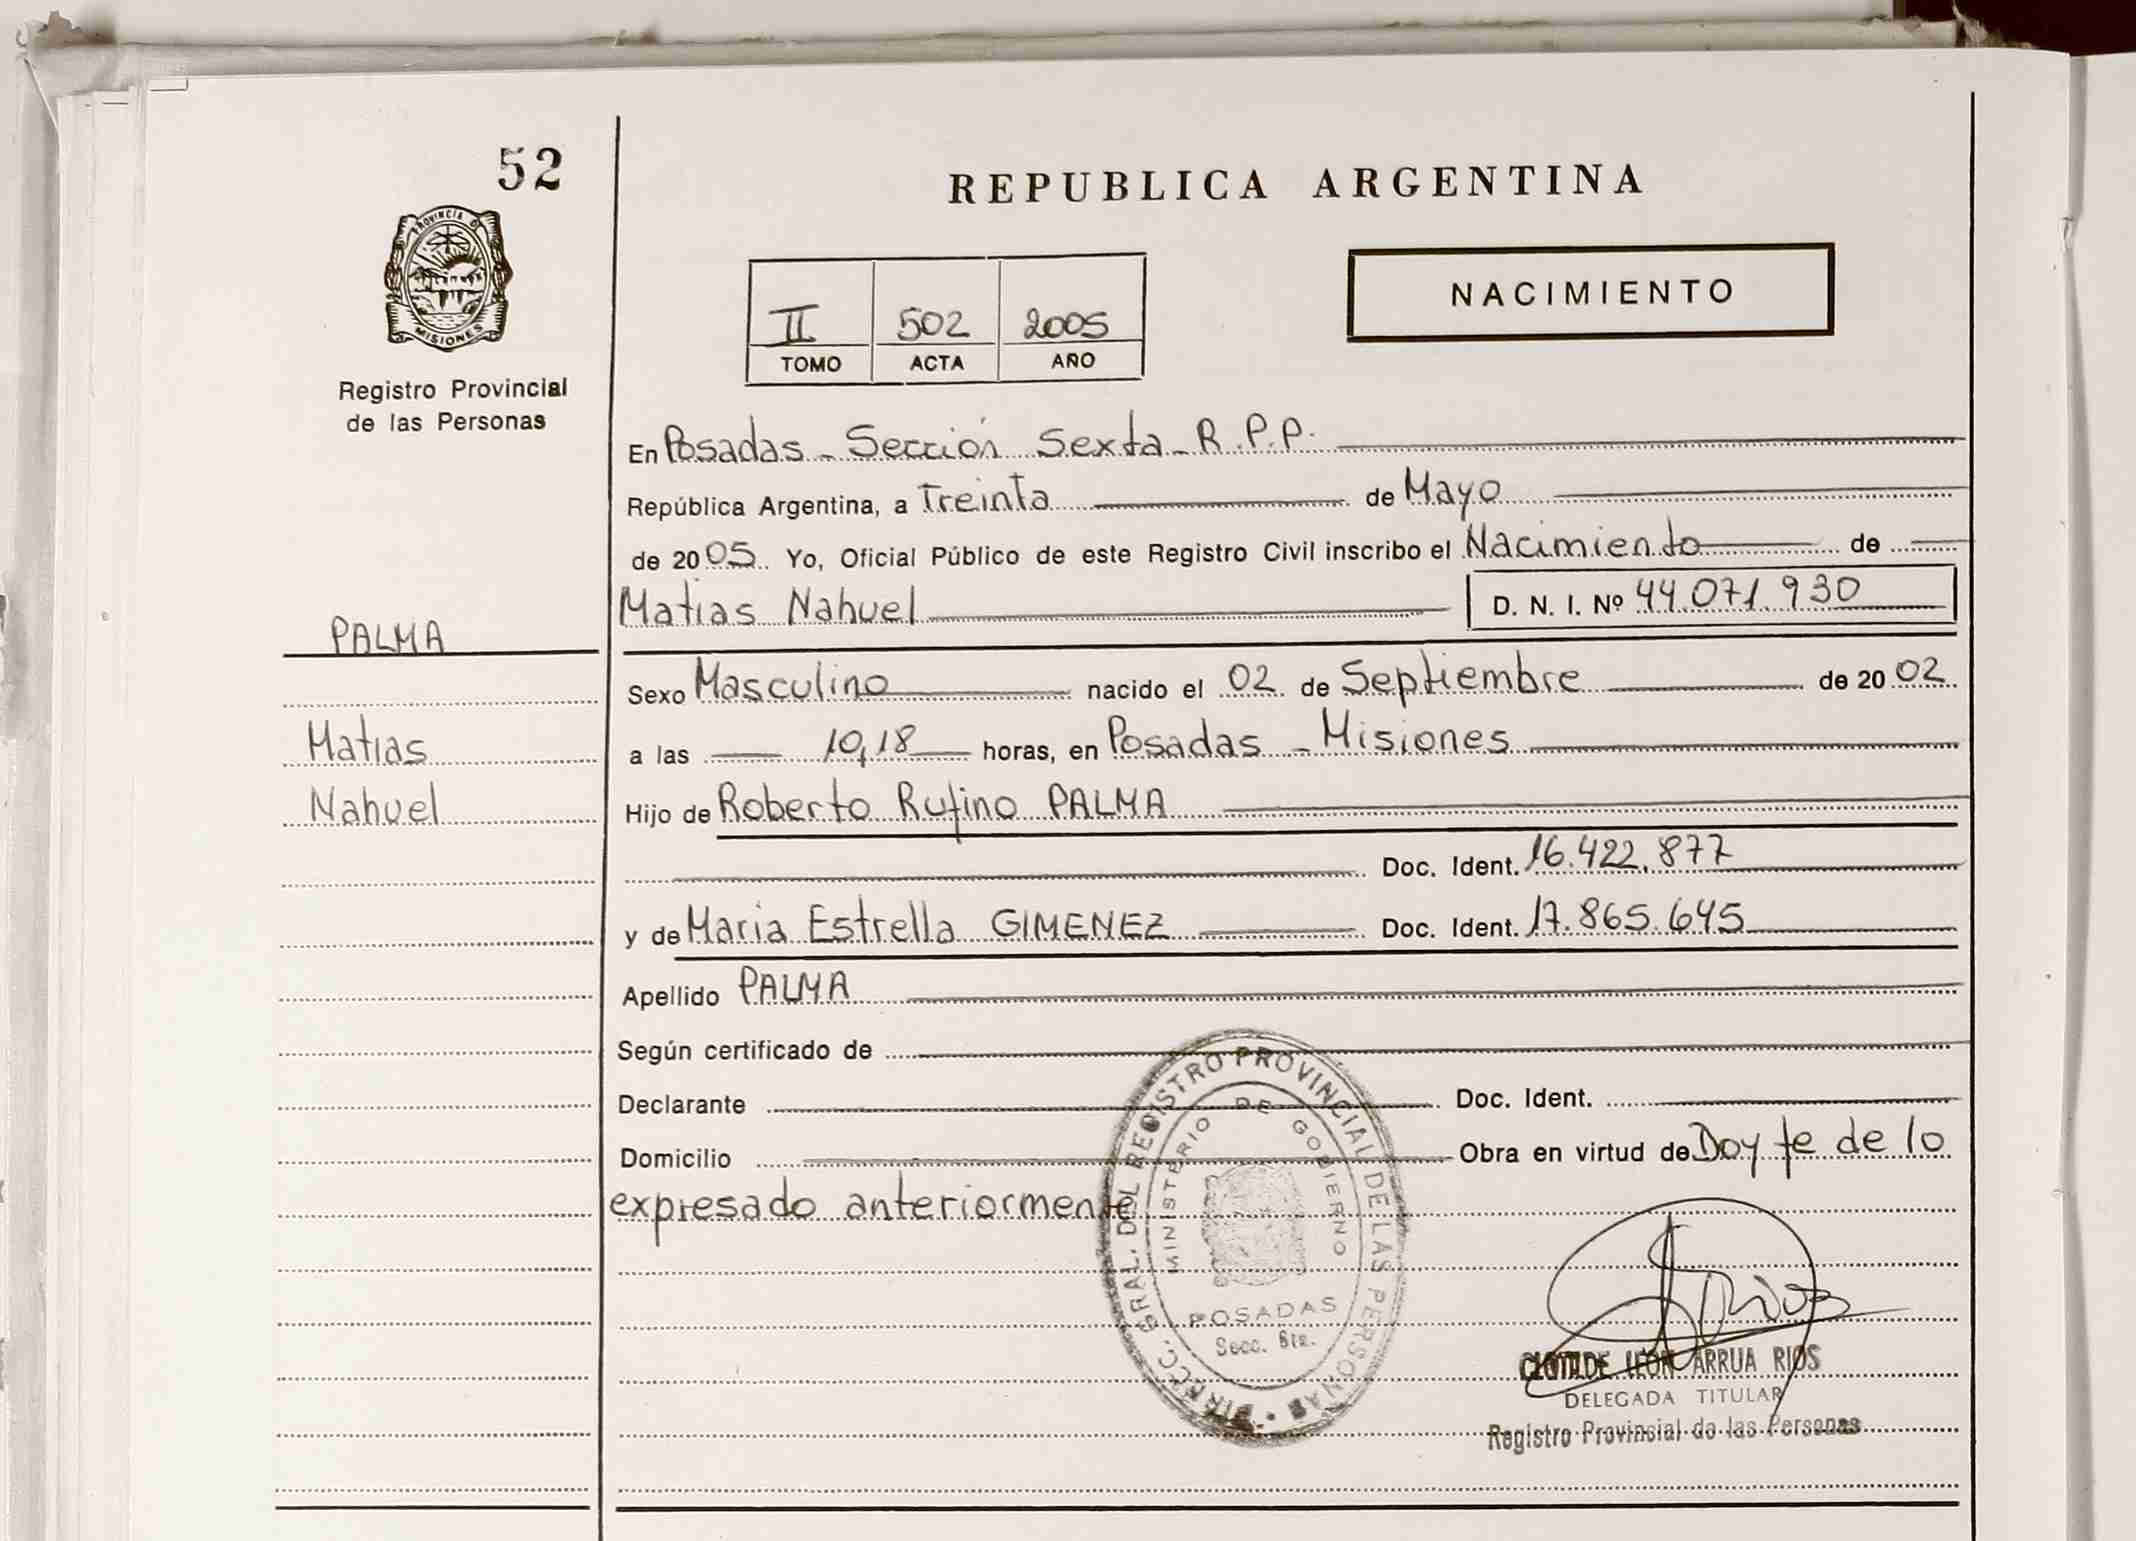 52
PROVINCIA DE
MISIONES
Registro Provincial
de las Personas
REPUBLICA ARGENTINA
II 502 2005
TOMO ACTA AÑO
NACIMIENTO
En Posadas - Sección Sexta - R.P.P.
República Argentina, a Treinta de Mayo
de 2005. Yo, Oficial Público de este Registro Civil inscribo el Nacimiento de
Matias Nahuel D. N. I. Nº 44.071.930
PALMA
Sexo Masculino nacido el 02 de Septiembre de 2002
Matias
a las 10,18 horas, en Posadas - Misiones
Nahuel
Hijo de Roberto Rufino PALMA
Doc. Ident. 16.422.877
y de Maria Estrella GIMENEZ Doc. Ident. 17.865.645
Apellido PALMA
Según certificado de
Declarante Doc. Ident.
Domicilio Obra en virtud de Doy fe de lo
expresado anteriormente
DIRECC. GRAL. DEL REGISTRO PROVINCIAL DE LAS PERSONAS
MINISTERIO DE GOBIERNO
POSADAS
Secc. 6ta.
CLOTILDE LEON ARRUA RIOS
DELEGADA TITULAR
Registro Provinsial de las Personas